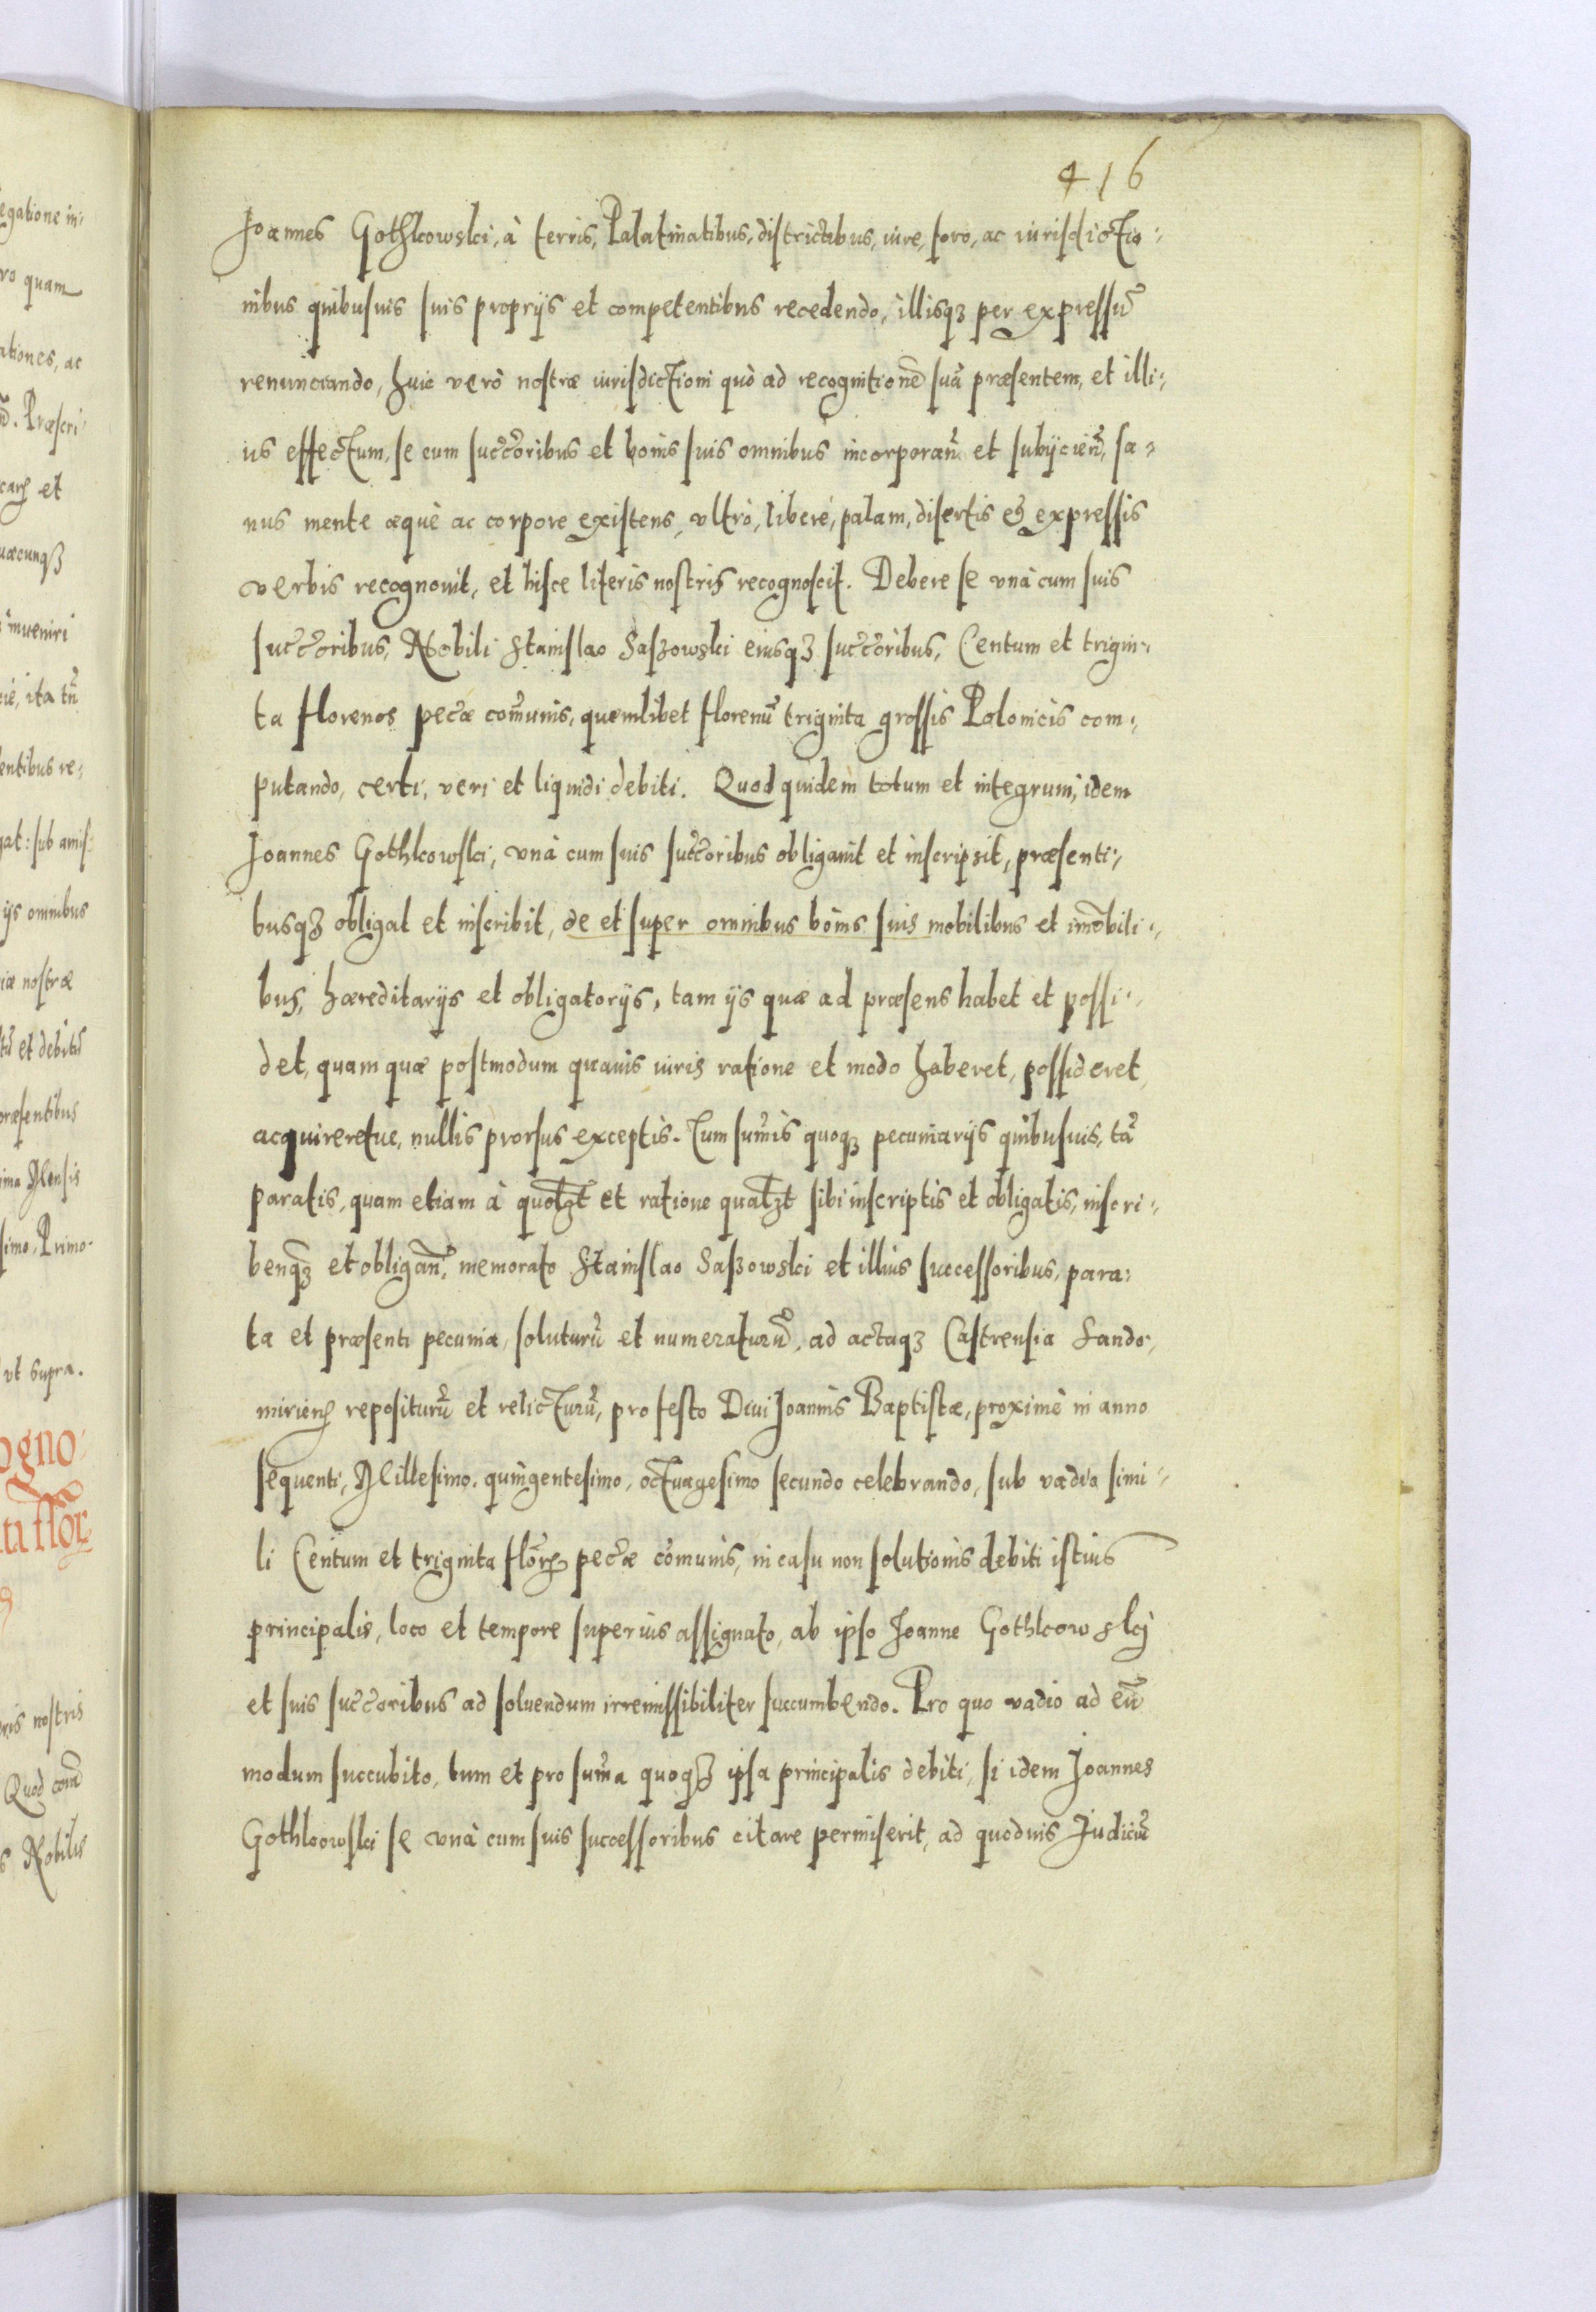 416
Joannes Gothkowski, à terris, Palatinatibus, districtibus, iure, foro, ac iurisdictio-
nibus quibusuis suis proprijs et competentibus recedendo, illisqꝫ per expressũ
renunciando, huic verò nostræ iurisdictioni quò ad recognitionẽ suã præsentem, et illi-
us effectum, se cum succ̃oribus et bonis suis omnibus incorporan̄. et subijcien̄, sa-
nus mente æquè ac corpore existens, vltrò, liberè, palam, disertis et expressis
verbis recognouit, et hisce literis nostris recognoscit. Debere se vnà cum suis
succ̃oribus, Nobili Stanislao Saszowski eiusqꝫ succ̃oribus, Centum et trigin-
ta florenos pec̃æ com̃unis, quemlibet florenũ triginta grossis Polonicis com-
putando, certi, veri et liquidi debiti. Quod quidem totum et integrum, idem
Joannes Gothkowski, vnà cum suis succ̃oribus obligauit et inscripsit, præsenti-
busqꝫ obligat et inscribit, de et super omnibus bonis suis mobilibus et im̃obili-
bus, hæreditarijs et obligatorijs, tam ijs quæ ad præsens habet et possi-
det, quam quæ postmodum quauis iuris ratione et modo haberet, possideret,
acquireretue, nullis prorsus exceptis. Tum sum̃is quoqꝫ pecuniarijs quibusuis, tã
paratis, quam etiam à quol̃ꝫt et ratione qual̃ꝫt sibi inscriptis et obligatis, inscri-
benqꝫ et obligan̄. memorato Stanislao Saszowski et illius successoribus, para-
ta et præsenti pecunia, soluturũ et numeraturũ, ad actaqꝫ Castrensia Sando-
mirien̄ repositurũ et relicturũ, pro festo Diui Joannis Baptistæ, proximè in anno
sequenti, Millesimo. quingentesimo, octuagesimo secundo celebrando, sub vadio simi-
li Centum et triginta flor̃ pec̃æ com̃unis, in casu non solutionis debiti istius
principalis, loco et tempore superius assignato, ab ipso Joanne Gothkowskj
et suis succ̃oribus ad soluendum irremissibiliter succumbendo. Pro quo vadio ad eũ
modum succubito, tum et pro sum̃a quoqꝫ ipsa principalis debiti, si idem Joannes
Gothkowski se vnà cum suis successoribus citare permiserit, ad quoduis Judiciũ